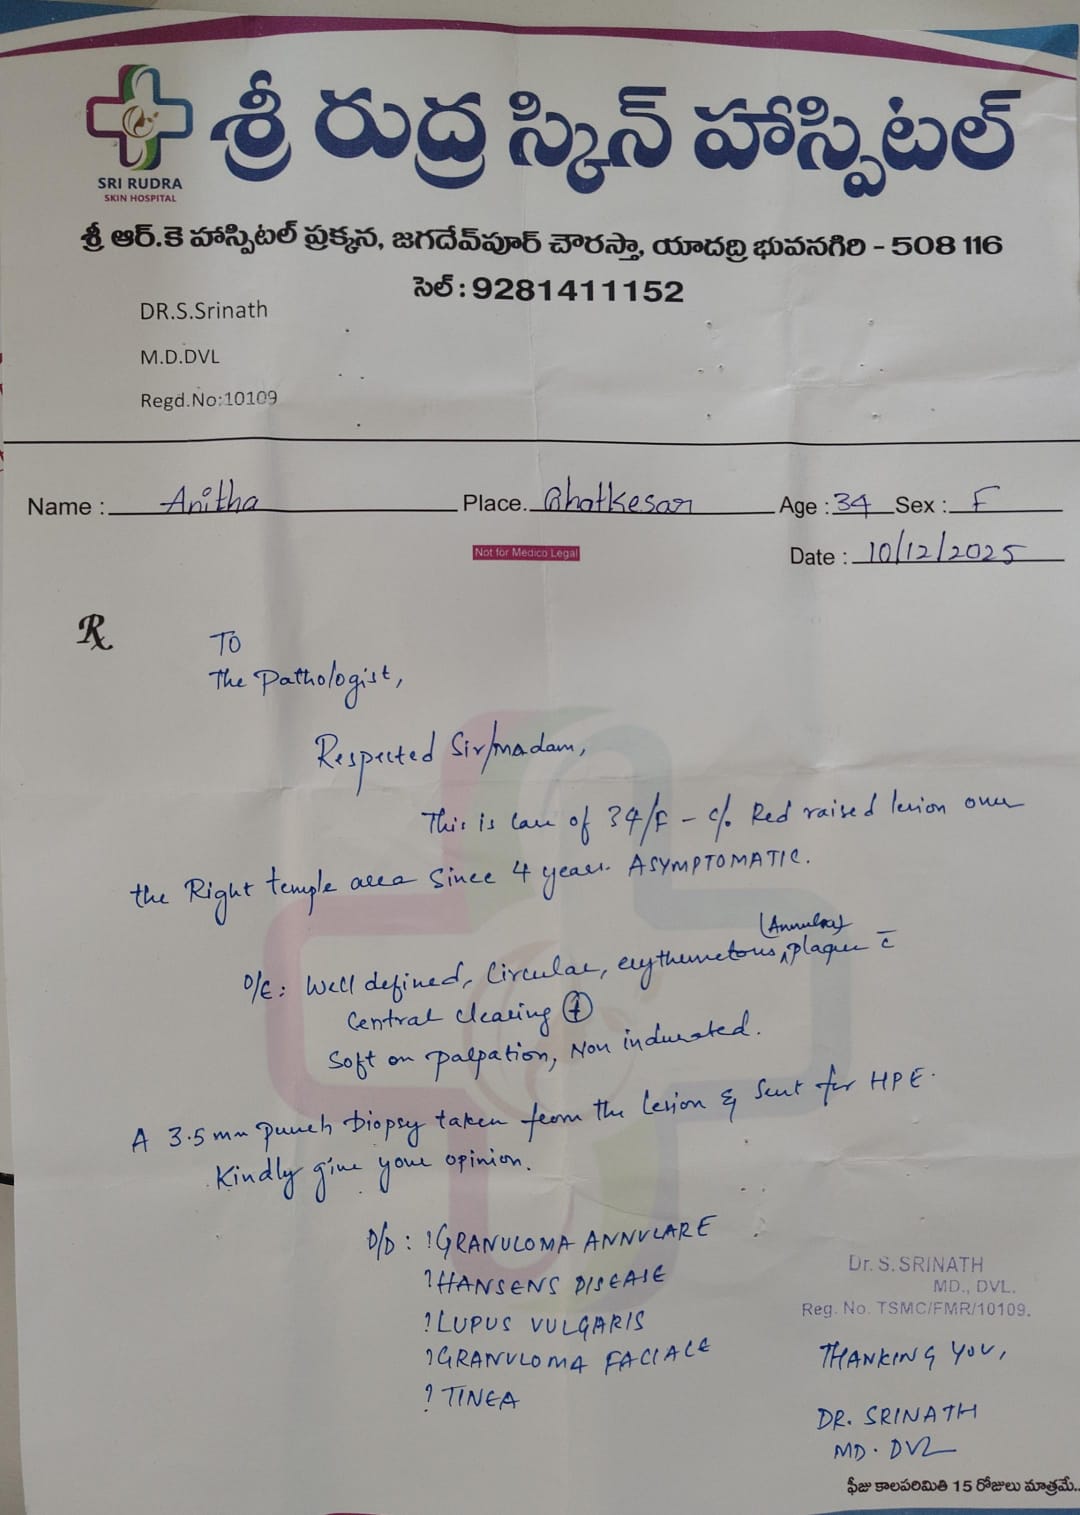 శ్రీ రుద్ర స్కిన్ హాస్పిటల్
SRI RUDRA
SKIN HOSPITAL
శ్రీ ఆర్.కె హాస్పిటల్ ప్రక్కన, జగదేవ్‌పూర్ చౌరస్తా, యాదద్రి భువనగిరి - 508 116
సెల్ : 9281411152
DR.S.Srinath
M.D.DVL
Regd.No:10109
Name : Anitha Place. Ghatkesar Age : 34 Sex : F
Not for Medico Legal
Date : 10/12/2025
Rx
TO
The Pathologist,
Respected Sir/madam,
This is case of 34/F - c/o Red raised lesion over
the Right temple area Since 4 years. ASYMPTOMATIC.
(Annular)
O/E: Well defined, Circular, erythemetous, plaque c̄
Central clearing ⊕
Soft on palpation, Non indurated.
A 3.5 mm punch biopsy taken from the lesion & sent for HPE.
Kindly give your opinion.
D/D : ?GRANULOMA ANNULARE
?HANSENS DISEASE
?LUPUS VULGARIS
?GRANULOMA FACIALE
? TINEA
Dr. S. SRINATH
MD., DVL.
Reg. No. TSMC/FMR/10109.
THANKING YOU,
DR. SRINATH
MD. DVL
ఫీజు కాలపరిమితి 15 రోజులు మాత్రమే..